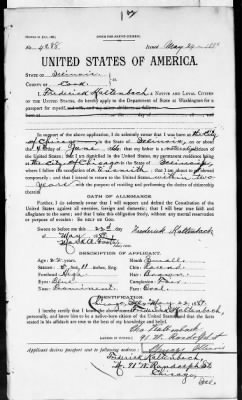 No. 4285. Issued May 24
UNITED STATES OF AMERICA.
STATE OF Illinois
COUNTY OF Cook
I, Frederick Kaltenbach, A NATIVE AND LOYAL CITIZEN
OF THE UNITED STATES, do hereby apply to the Department of State at Washington for a
passport for myself
In support of the above application, I do solemnly swear that I was born at the City
of Chicago in the State of Illinois, on or about
the day of June, 186 ; that I am a
United States; that I am domiciled in the United States, my permanent residence being at
the City of Chicago in the State of Illinois,
where I follow the occupation of ; that I am about to go abroad
temporarily; and that I intend to return to the United States within two
years with the purpose of residing and performing the duties of citizenship
therein.
OATH OF ALLEGIANCE.
Further, I do solemnly swear that I will support and defend the Constitution of the
United States against all enemies, foreign and domestic; that I will bear true faith and
allegiance to the same; and that I take this obligation freely, without any mental reservation
or purpose of evasion: So help me God.
Sworn to before me this 22d day
of May
Frederick Kaltenbach
DESCRIPTION OF APPLICANT.
Age: 22 years.
Stature: 5 feet, inches, Eng.
Forehead:
Eyes: Blue
Nose: Prominent
Mouth: Small
Chin: Round
Hair:
Complexion: Fair
Face: Oval
IDENTIFICATION.
Chicago, Ills May 22, 188
I hereby certify that I know the above named Frederick Kaltenbach
personally, and know him to be a native-born citizen of the United States, and that the facts
stated in his affidavit are true to the best of my knowledge and belief.
Kaltenbach
91 W. Randolph St
Chicago Illinois
Applicant desires passport sent to following address:
Frederick Kaltenbach,
No. 91 W. Randolph St
Chicago,
Ill.